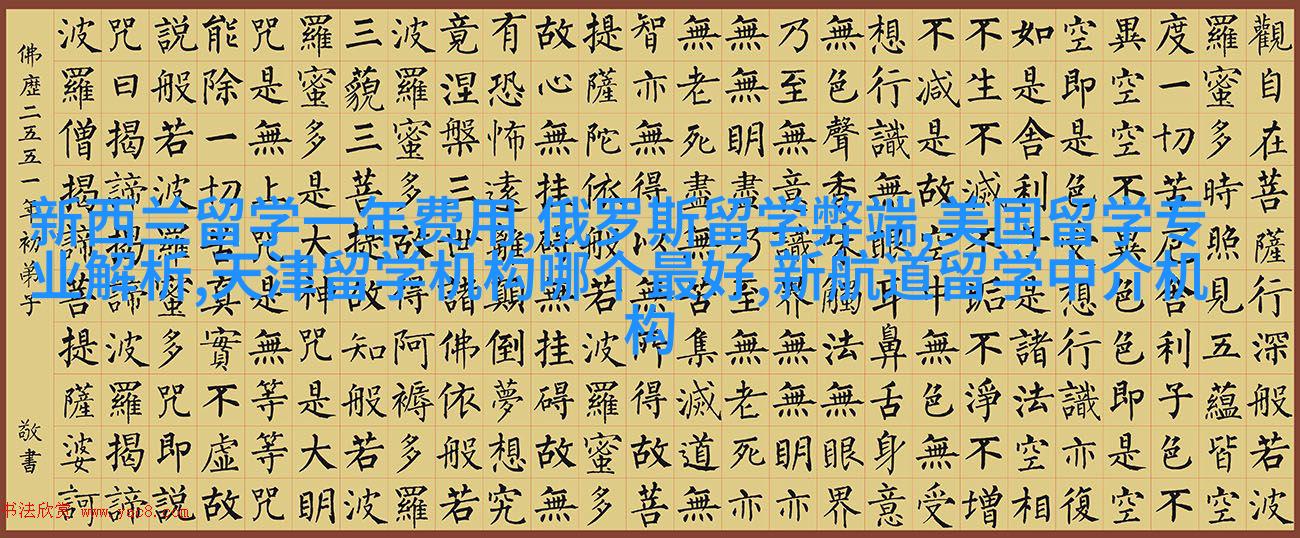 觀自在菩薩行深般若波
羅蜜多時照見五蘊皆空
度一切苦厄舍利子色不
異空空不異色色即是空
空即是色受想行識亦復
如是舍利子是諸法空相
不生不滅不垢不淨不增
不減是故空中無色無受
想行識無眼耳鼻舌身意
無色聲香味觸法無眼界
乃至無意識界無無明亦
無無明盡乃至無老死亦
無老死盡無苦集滅道無
智亦無得以無所得故菩
提薩陀依般若波羅蜜多
故心無挂礙無挂礙故無
有恐怖遠離顛倒夢想究
竟涅槃三世諸佛依般若
波羅蜜多故得阿褥多羅
三藐三菩提故知般若波
羅蜜多是大神咒是大明
咒是無上咒是無等等咒
能除一切苦真實不虛故
説般若波羅蜜多咒即説
咒曰揭諦揭諦波羅揭諦
波羅僧揭諦菩提薩婆訶
佛歷二五五一年初弟子
敬書
新西兰留学一年费用,俄罗斯留学弊端,美国留学专
业解析,天津留学机构哪个最好,新航道留学中介机
构
书法欣赏 www.yac8.com